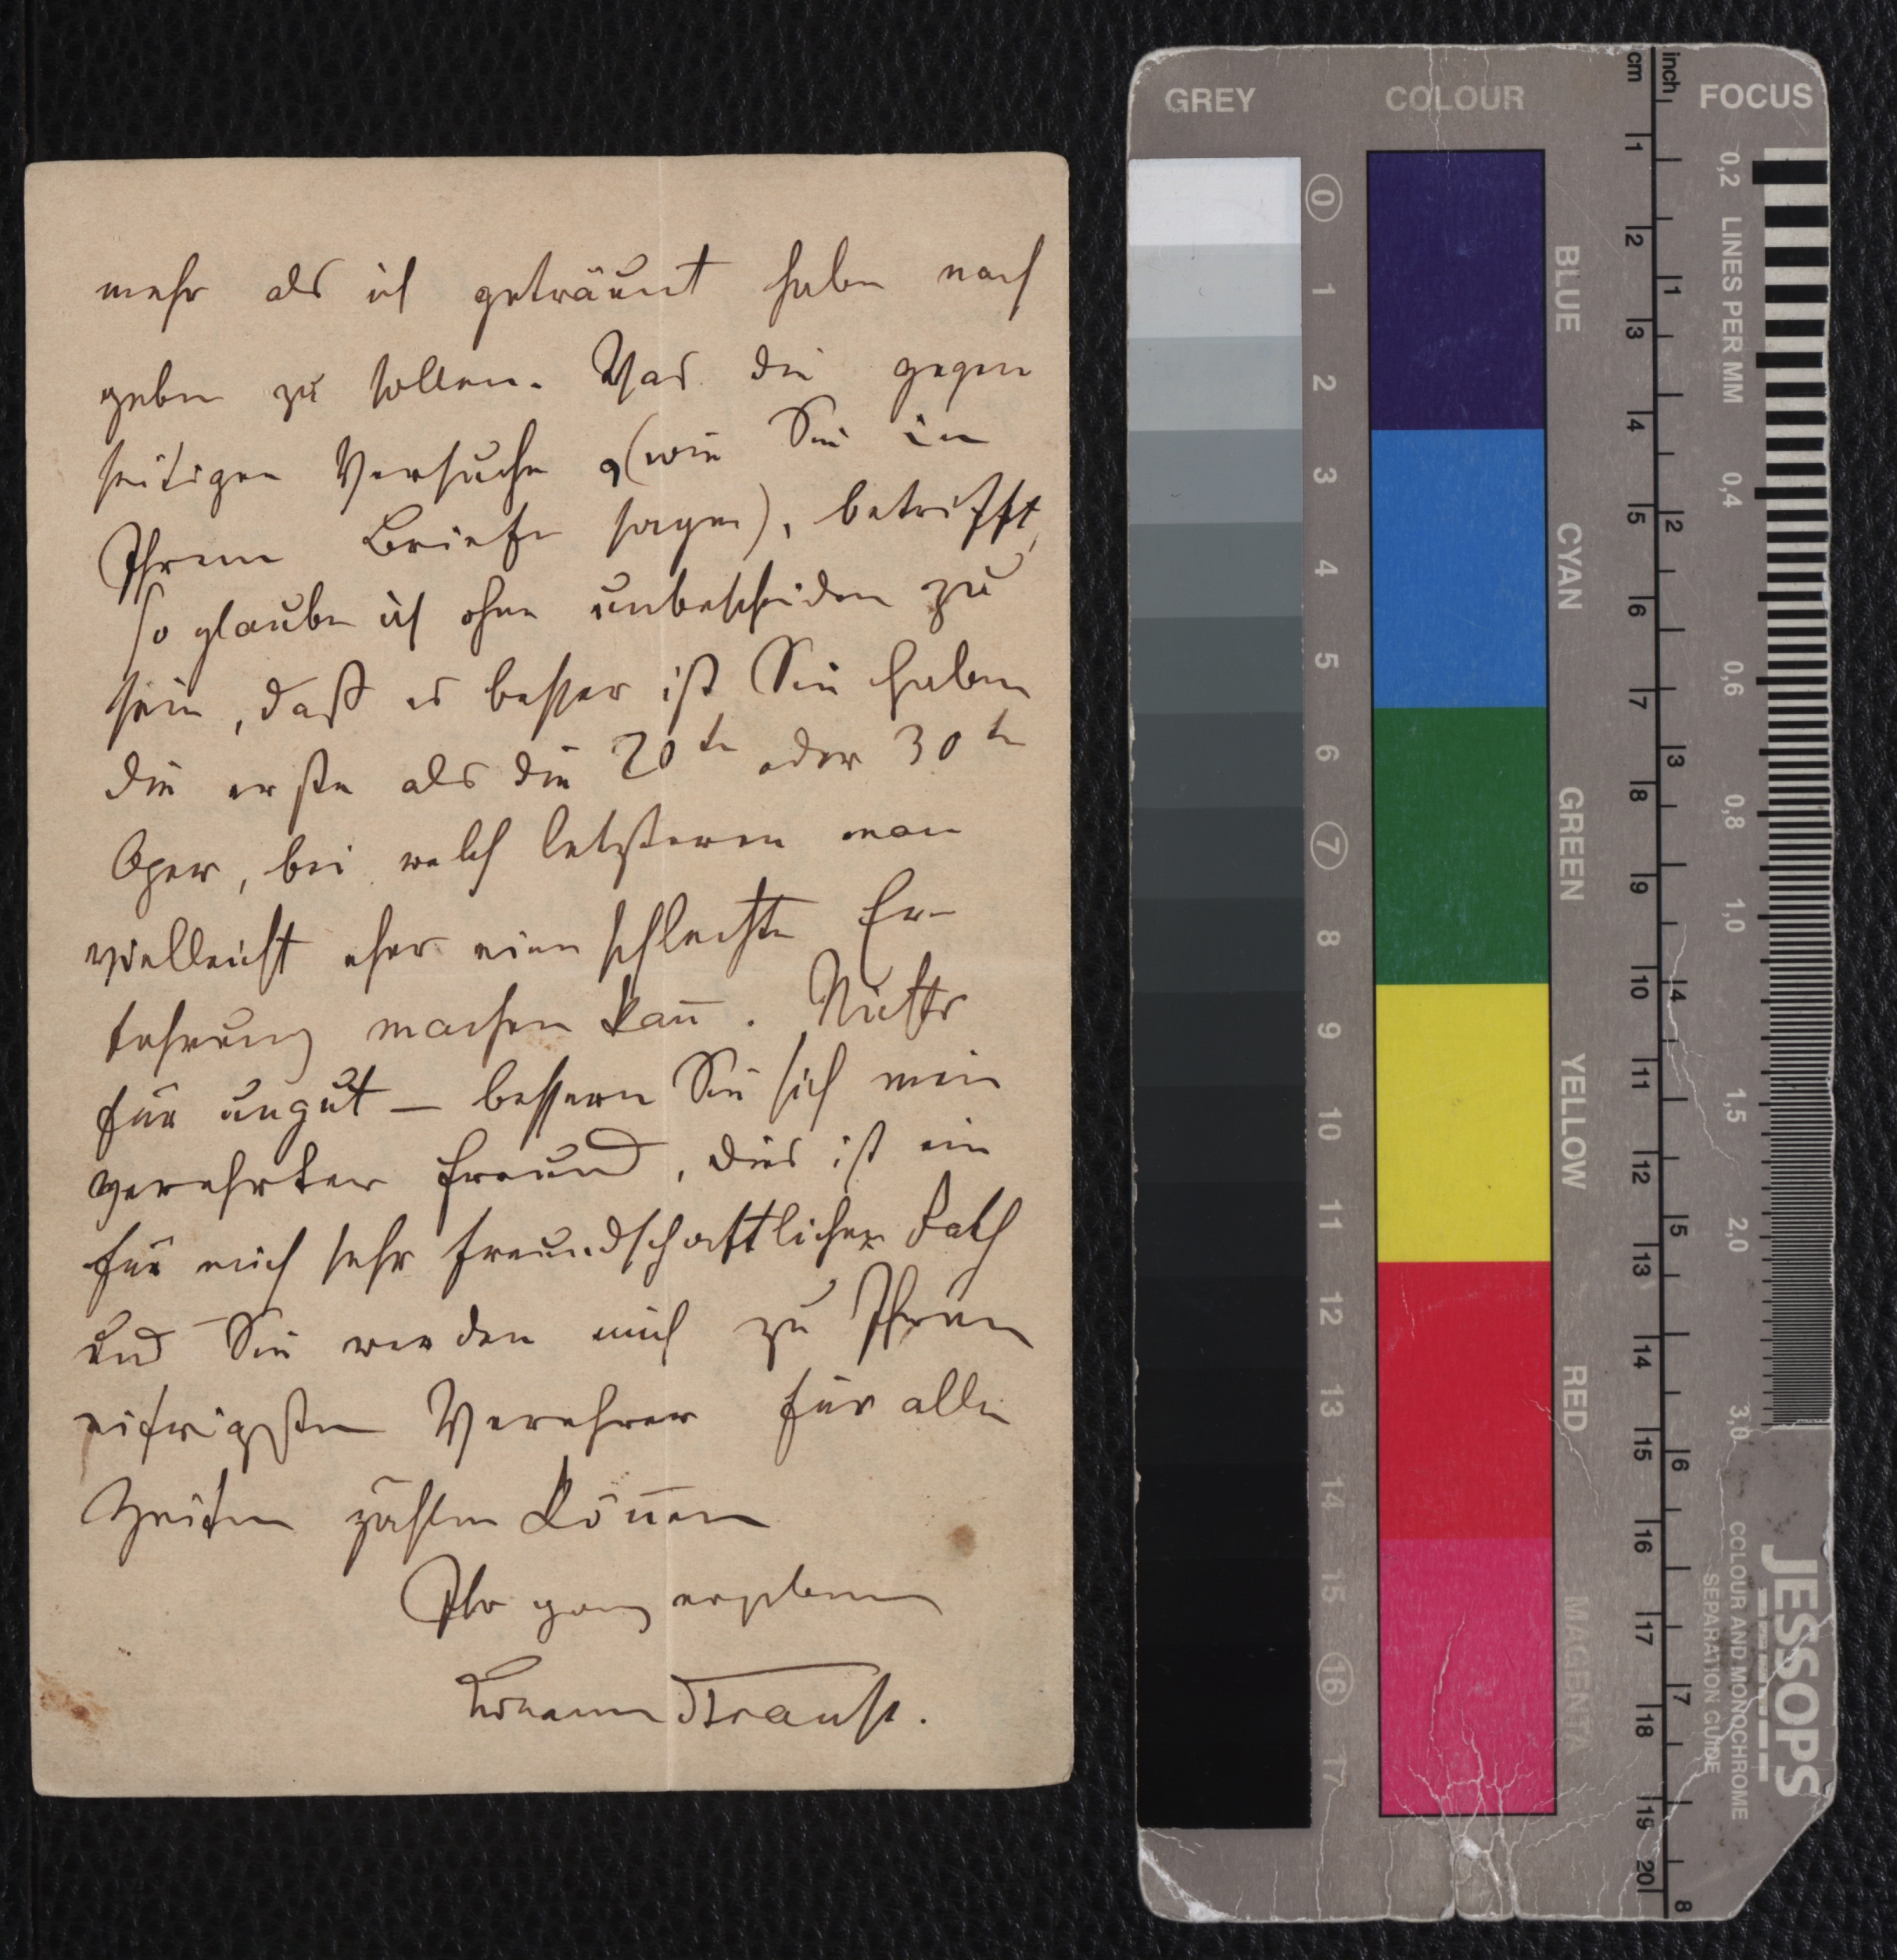 mehr als ich geträumt habe nach
geben zu sollen. Was die gegen
seitigen Versuche, (wie Sie in
Ihrem Briefe sagen), betrifft,
so glaube ich ohne unbescheiden zu
sein, daß es besser ist Sie haben
die erste als die 20te oder 30te
Oper, bei welch letzteren man
vielleicht eher eine schlechte Er-
fahrung machen kan̄. Nichts
für ungut — bessern Sie sich mein
verehrter Freund, dies ist ein
für mich sehr freundschaftlicher Rath
und Sie werden mich zu Ihren
eifrigsten Verehrer für alle
Zeiten zählen kön̄en
Ihr ganz ergebener
Johann Strauss.
GREY COLOUR FOCUS
0 1 2 3 4 5 6 7 8 9 10 11 12 13 14 15 16 17
BLUE
CYAN
GREEN
YELLOW
RED
MAGENTA
cm
1 2 3 4 5 6 7 8 9 10 11 12 13 14 15 16 17 18 19 20
inch
1 2 3 4 5 6 7 8
LINES PER MM
0,2 0,4 0,6 0,8 1,0 1,5 2,0 3,0
JESSOPS
COLOUR AND MONOCHROME
SEPARATION GUIDE